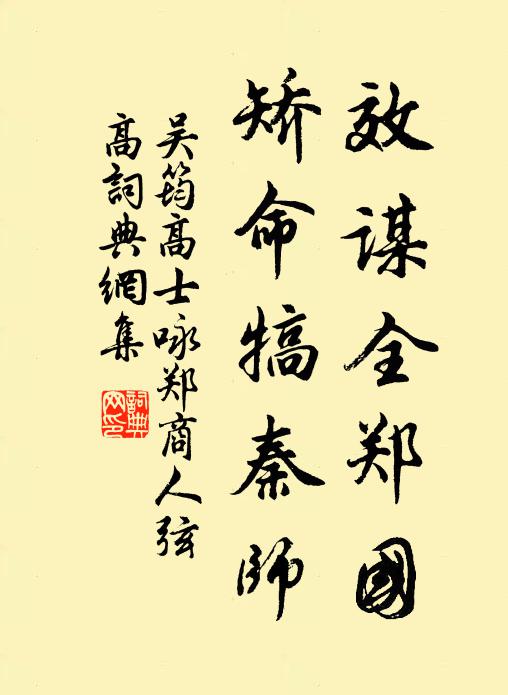 效谋全郑國
矫命犒秦师
吴筠高士咏郑商人弦
高詞典網集
詞典网印